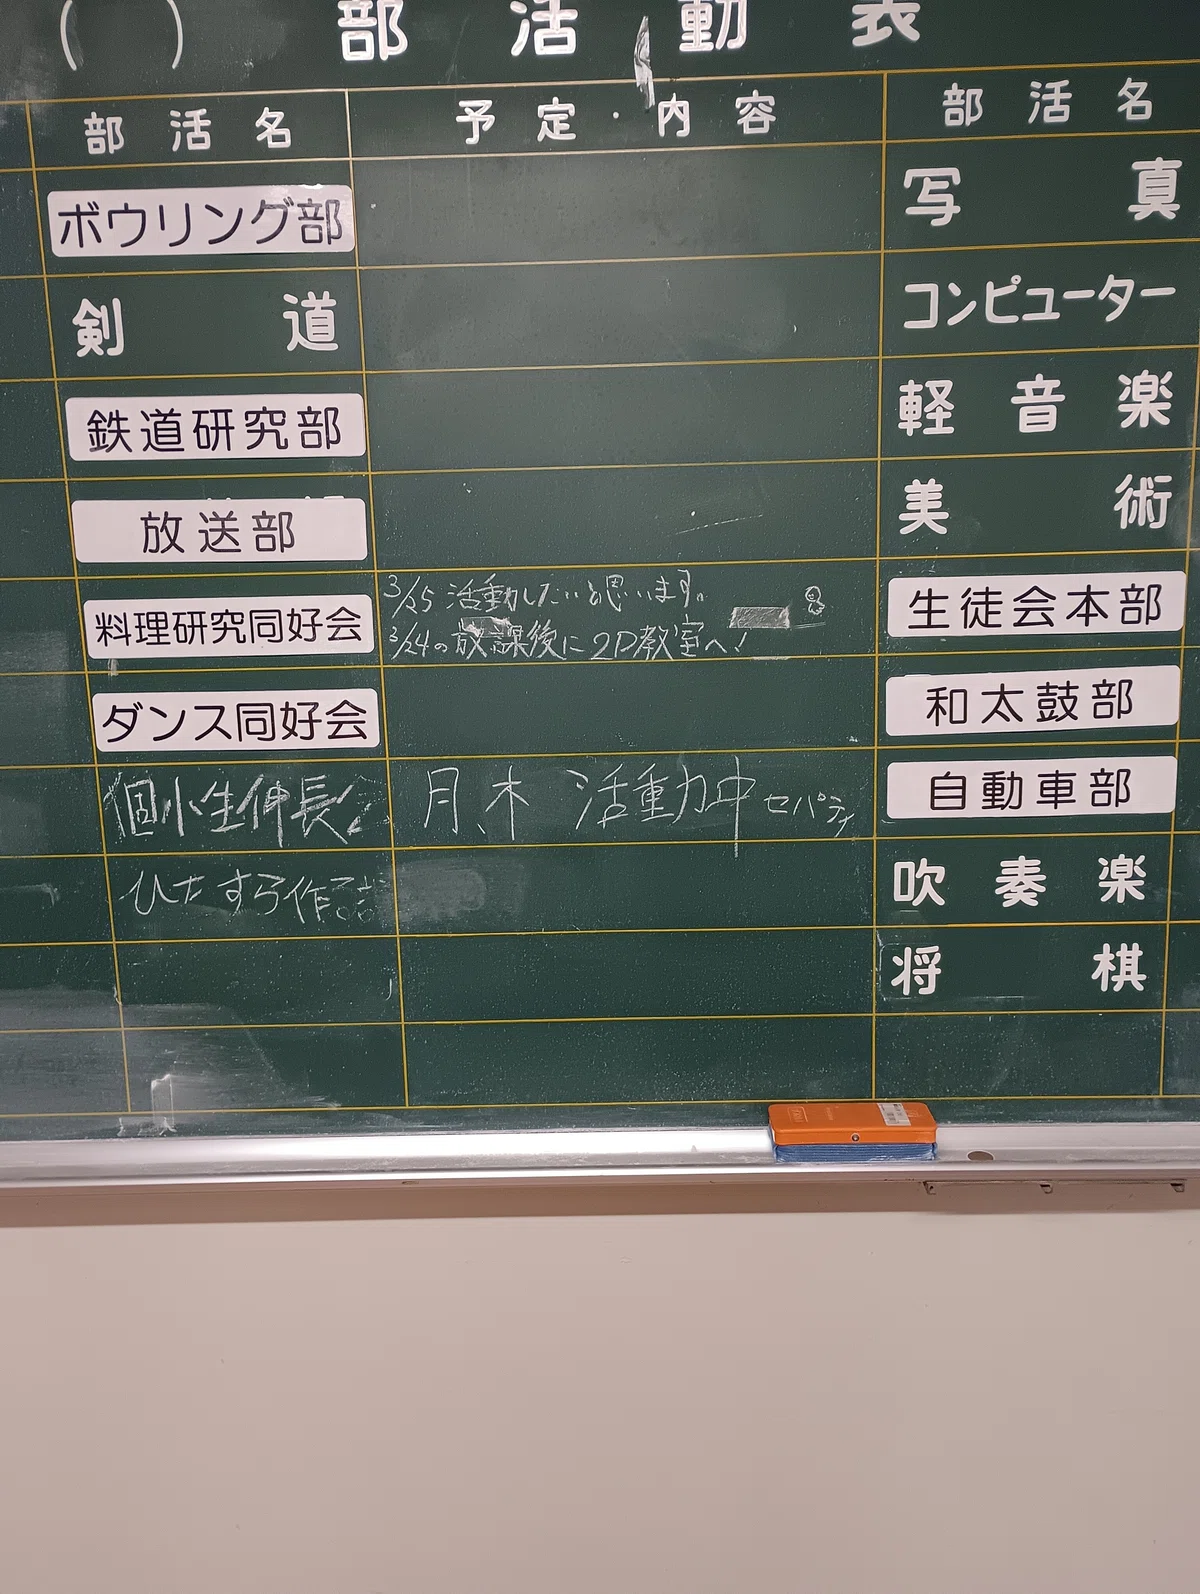 ( ) 部活動表
部活名 予定・内容 部活名
ボウリング部
写真
剣道
コンピューター
鉄道研究部
軽音楽
放送部
美術
料理研究同好会
3/25 活動したいと思います。
3/24の放課後に2D教室へ!
生徒会本部
ダンス同好会
和太鼓部
個小生伸長会
月、木 活動中 セパティ
自動車部
ひたすら作る
吹奏楽
将棋